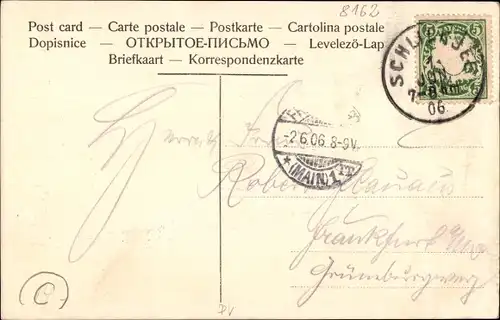 8162
Post card — Carte postale — Postkarte — Cartolina postale
Dopisnice — ОТКРЫТОЕ-ПИСЬМО — Levelező-Lap
Briefkaart — Korrespondenzkarte
5
SCHLIERSEE
1 JUN
06
-2.6.06.8-9V.
* (MAIN) 1
Herrn
Robert
Frankfurt a/M
Grüneburgweg